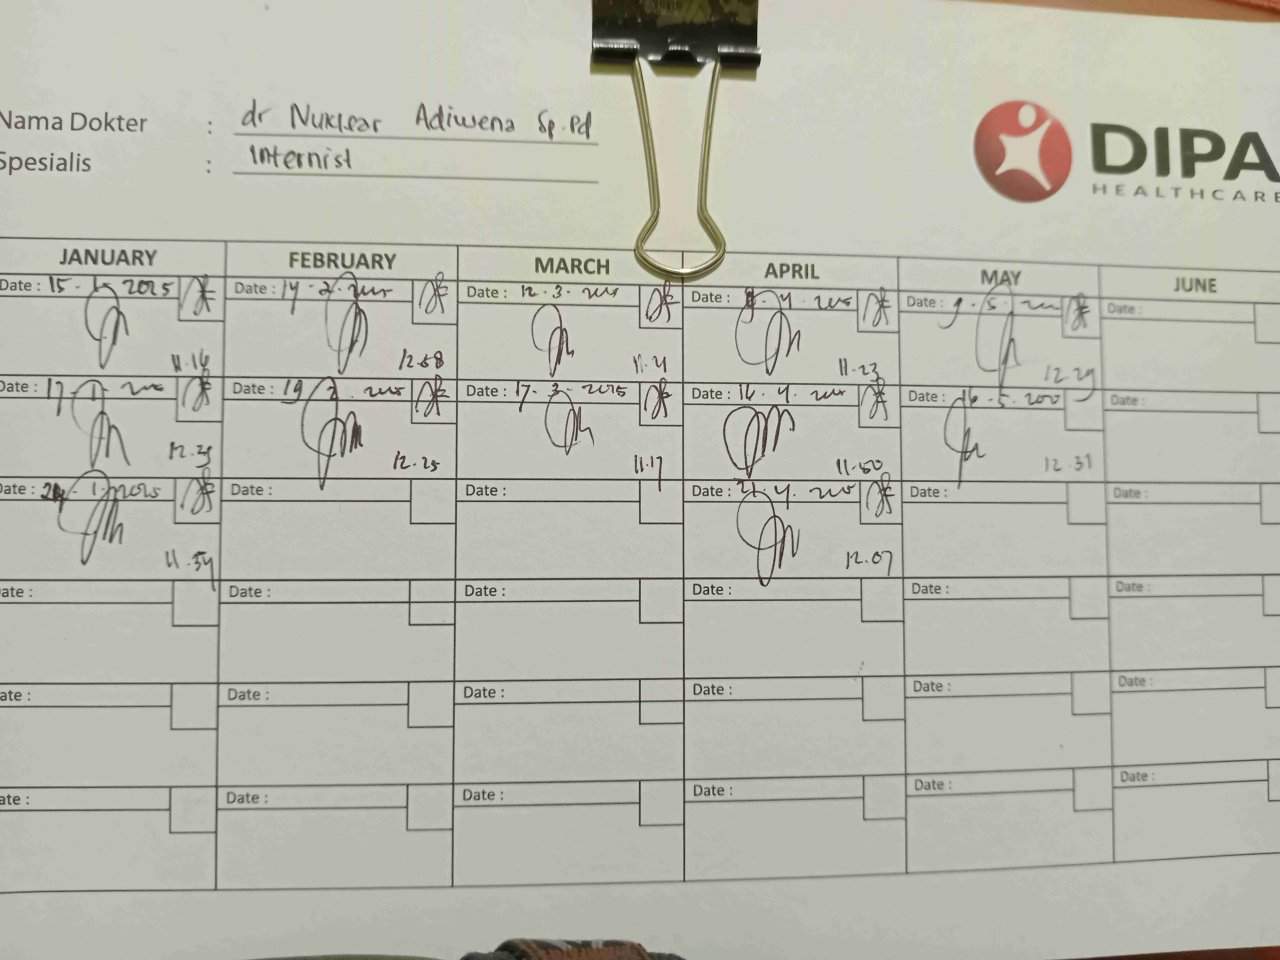 Nama Dokter : dr Nuklear Adiwena Sp.Pd
Spesialis : Internist
DIPA
HEALTHCARE
JANUARY FEBRUARY MARCH APRIL MAY JUNE
Date : 15 - 1 - 2025 Date : 14 - 2 - 2025 Date : 12 - 3 - 2025 Date : 8 - 4 - 2025 Date : 9 - 5 - 2025 Date :
11.16 12.58 11.21 11.23 12.29
Date : 17 - 1 - 2025 Date : 19 - 2 - 2025 Date : 17 - 3 - 2025 Date : 16 - 4 - 2025 Date : 16 - 5 - 2025 Date :
12.25 12.25 11.17 11.50 12.31
Date : 24 - 1 - 2025 Date : Date : Date : 21 - 4 - 2025 Date : Date :
11.54 12.07
ate : Date : Date : Date : Date : Date :
ate : Date : Date : Date : Date : Date :
ate : Date : Date : Date : Date : Date :